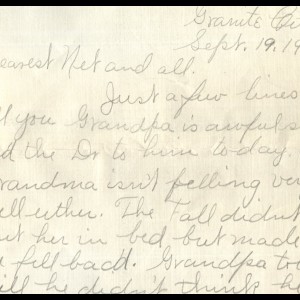 Granite Ci
Sept. 19, 19
earest Net and all.
Just a few lines
ll you Grandpa is awful s
ad the Dr to him today.
randma isn't felling ver
ell either. The Fall didn't
ut her in bed, but made
e fill bad. Grandpa too
ill he didn't think he